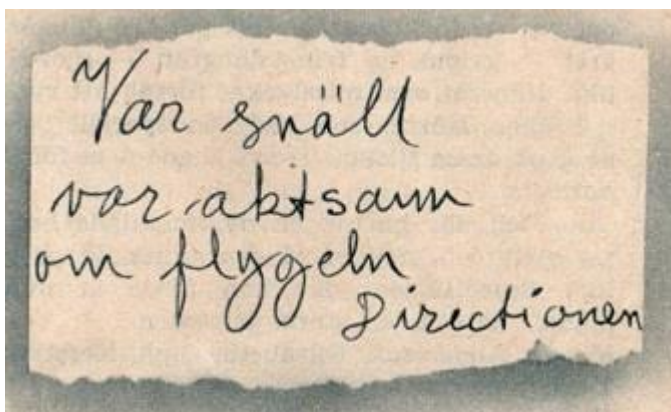 Var snäll
var aktsam
om flygeln
Directionen